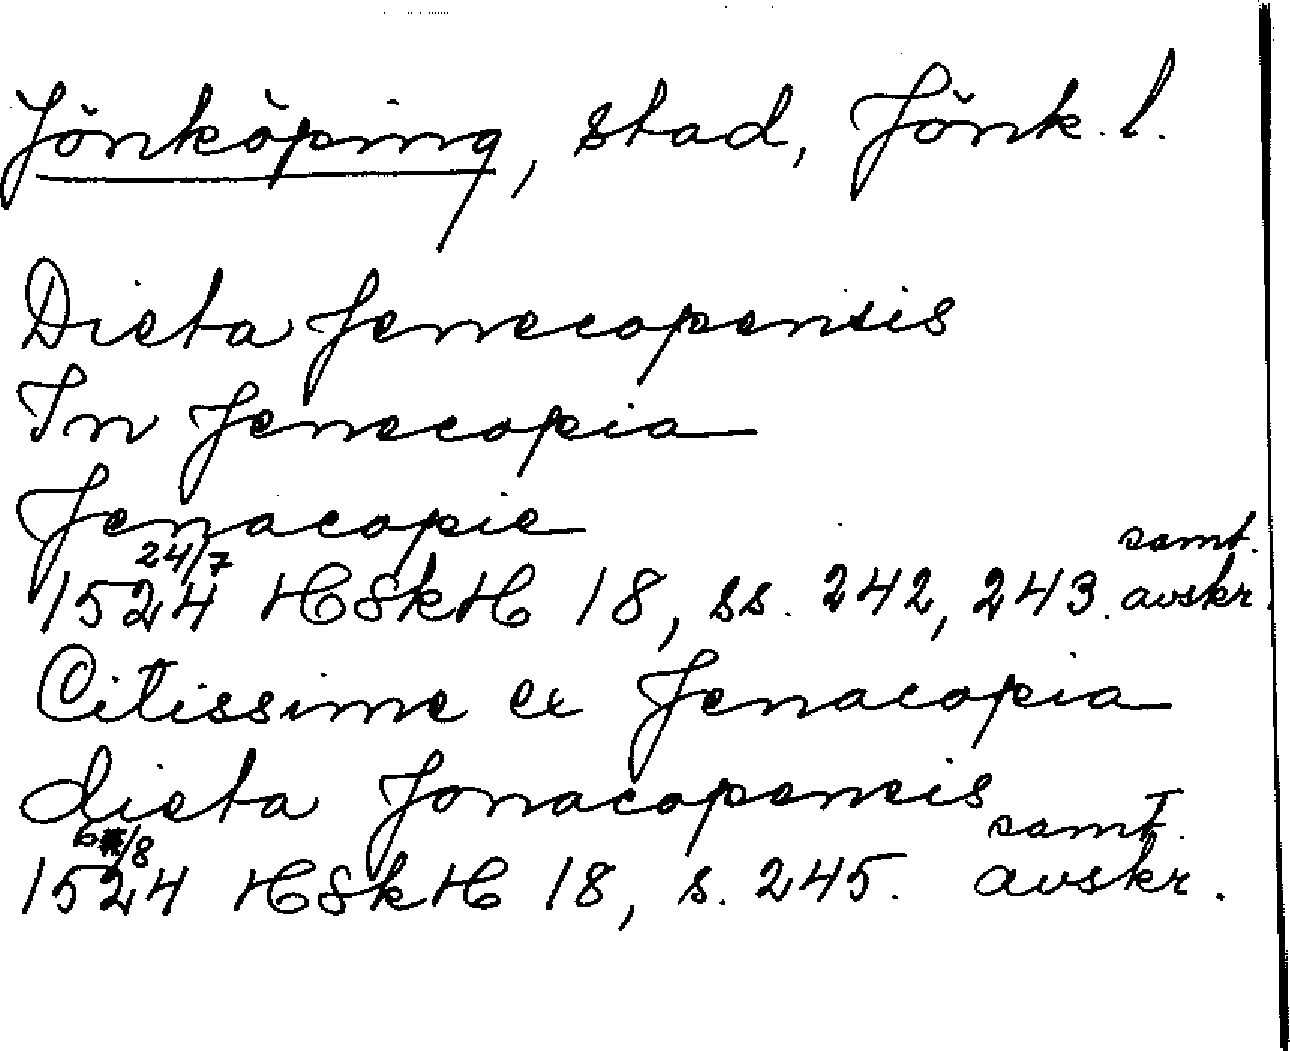 Jönköping, stad, Jönk. l.
Dieta Jenecopensis
In Jenecopia
Jenacopie
24/7 1524 HSkH 18, ss. 242, 243. samt. avskr.
Citissime ex Jenacopia
dieta Jonacopensis
6/8 1524 HSkH 18, s. 245. samt. avskr.